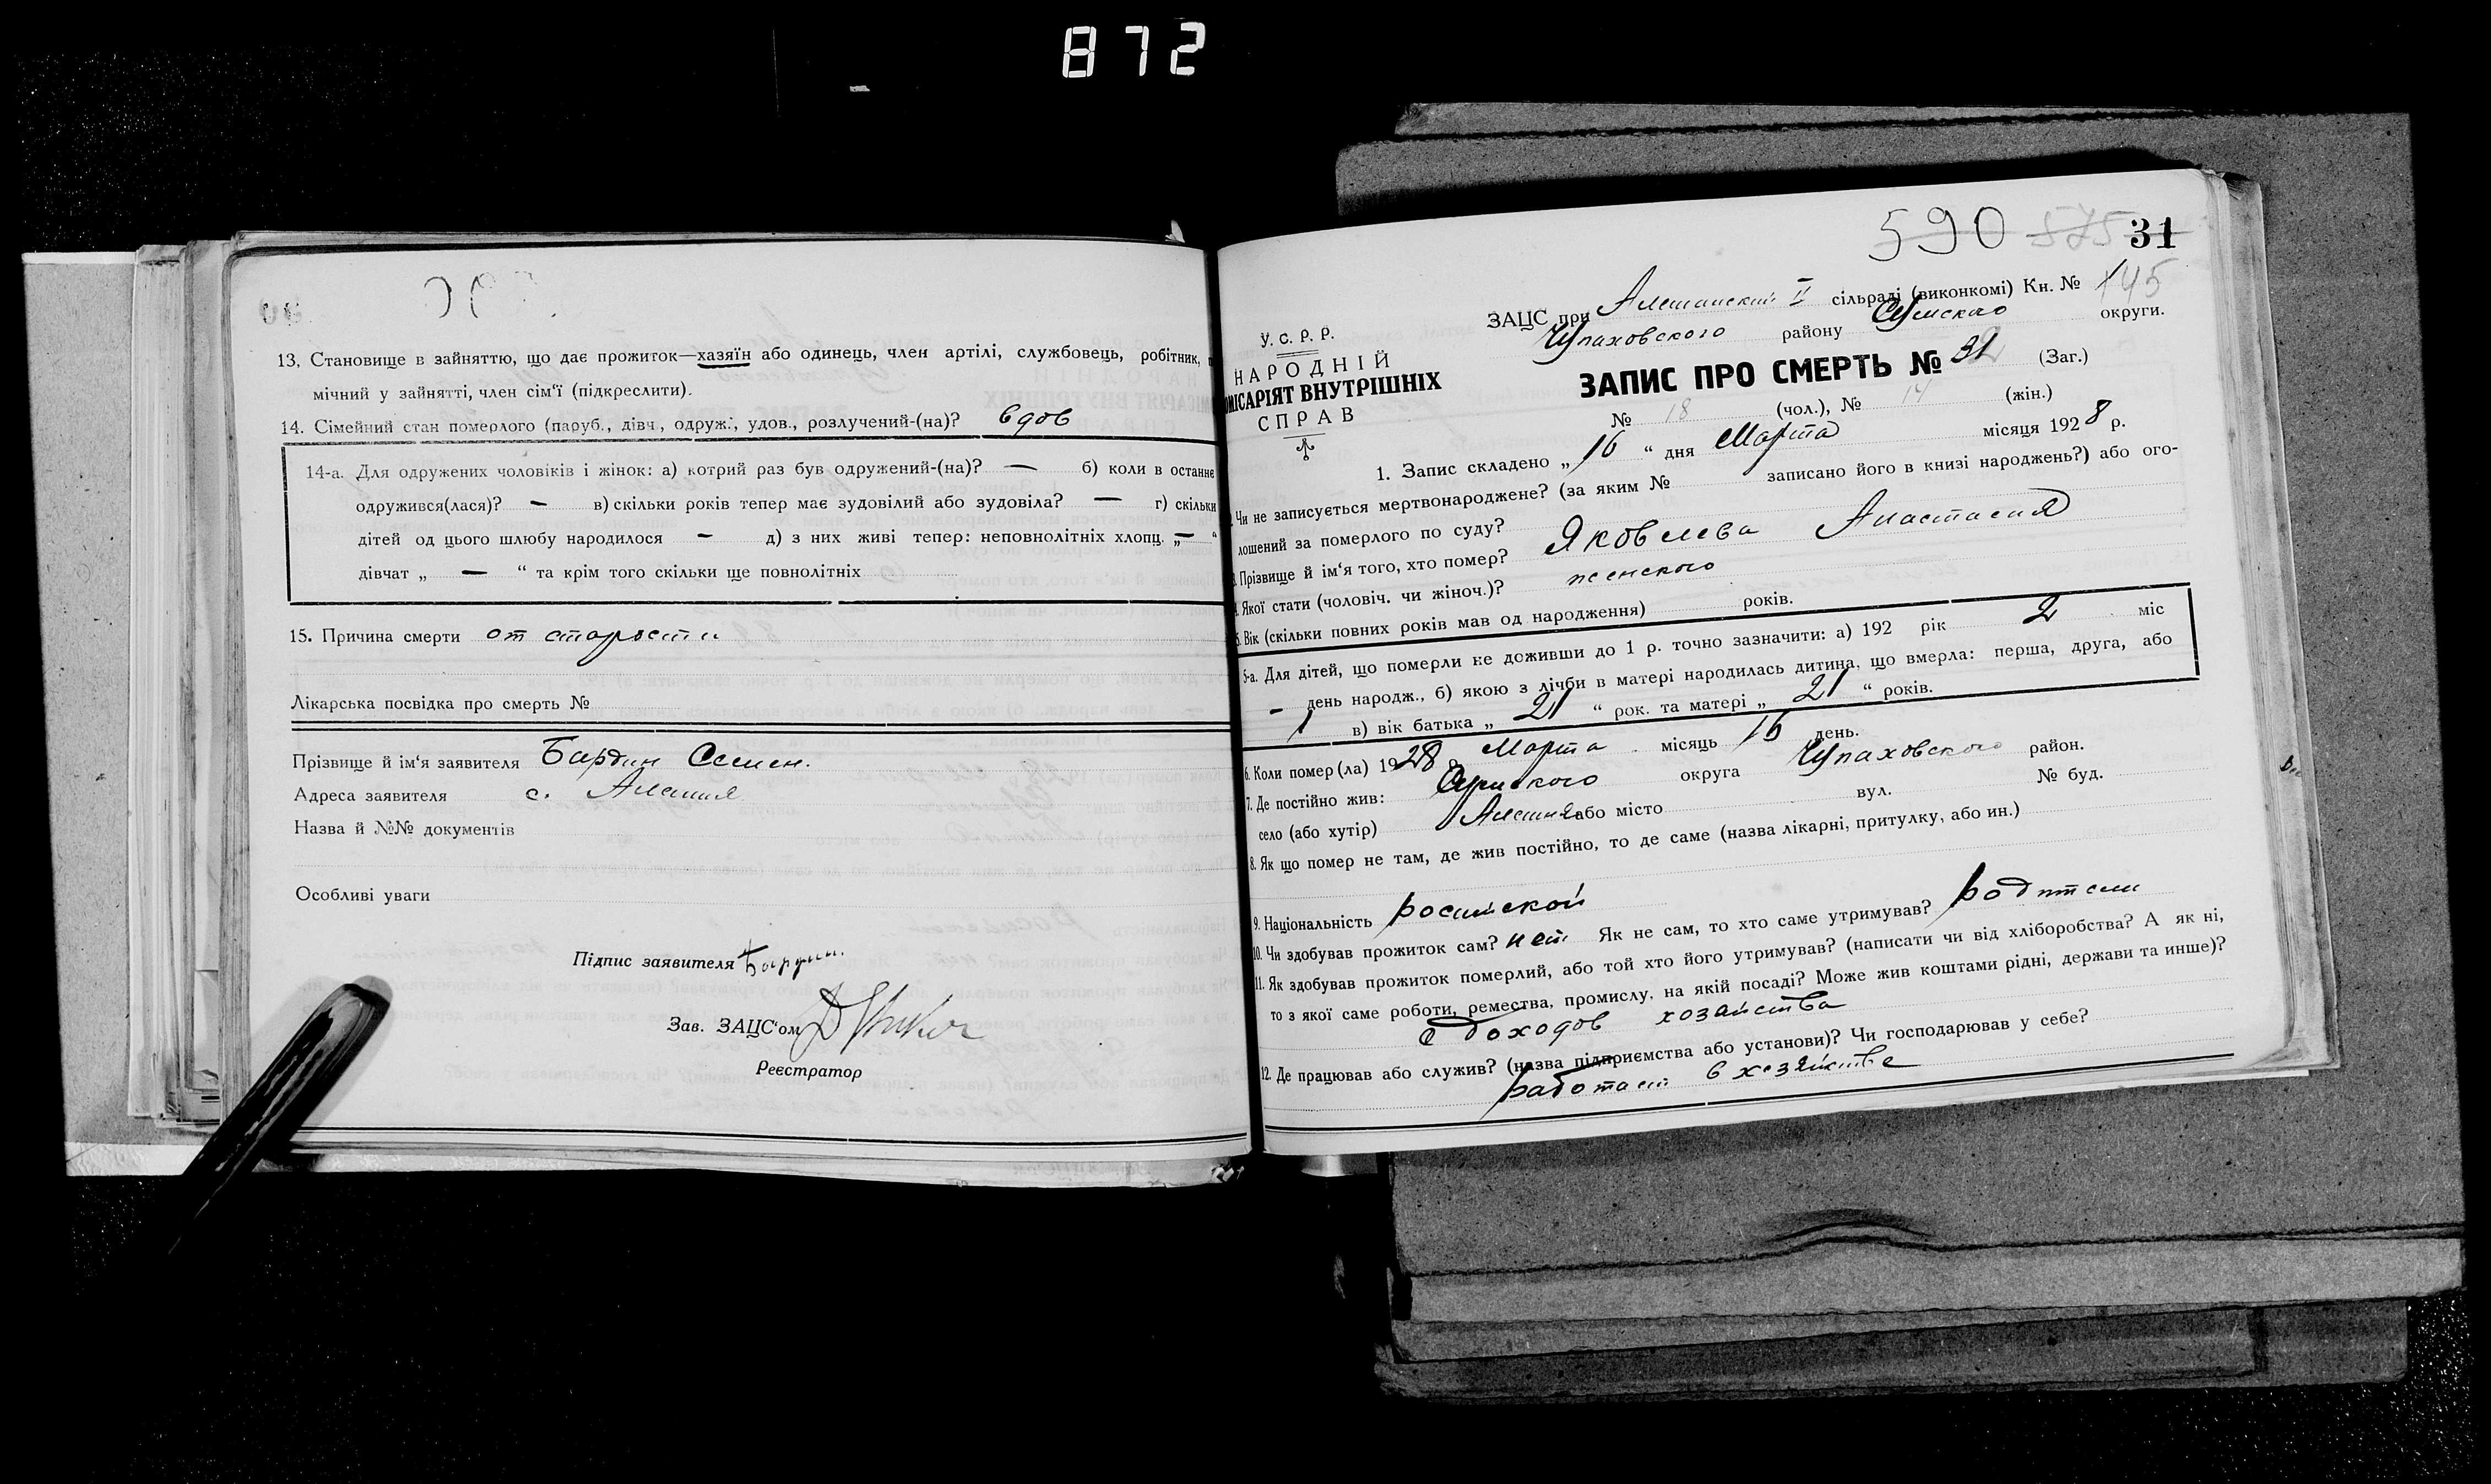 872
13. Становище в зайняттю, що дає прожиток—хазяїн або одинець, член артілі, службовець, робітник,
мічний у зайнятті, член сім'ї (підкреслити).
14. Сімейний стан померлого (паруб., дівч., одруж., удов., розлучений-(на)? вдов
14-а. Для одружених чоловіків і жінок: а) котрий раз був одружений-(на)? — б) коли в останнє
одружився(лася)? — в) скільки років тепер має зудовілий або зудовіла? — г) скільки
дітей од цього шлюбу народилося — д) з них живі тепер: неповнолітніх хлопц. „—“
дівчат „ — “ та крім того скільки ще повнолітніх
15. Причина смерти от старости
Лікарська посвідка про смерть №
Прізвище й ім'я заявителя Бардин Семен.
Адреса заявителя с. Алешня
Назва й №№ документів
Особливі уваги
Підпис заявителя Бардин.
Зав. ЗАЦС'ом
Реєстратор
590 575 31
ЗАЦС при Алешанский II сільраді (виконкомі) Кн. № 145
Чупаховского району Сумского округи.
У. С. Р. Р.
НАРОДНІЙ
ОМІСАРІЯТ ВНУТРІШНІХ
СПРАВ
ЗАПИС ПРО СМЕРТЬ № 31 (Заг.)
№ 18 (чол.), № 14 (жін.)
1. Запис складено „ 16 “ дня Марта місяця 1928 р.
Чи не записується мертвонароджене? (за яким № записано його в книзі народжень?) або ого-
лошений за померлого по суду?
3. Прізвище й ім'я того, хто помер? Яковлева Анастасия
4. Якої стати (чоловіч. чи жіноч.)? женского
5. Вік (скільки повних років мав од народження) років.
5-а. Для дітей, що померли не доживши до 1 р. точно зазначити: а) 192 рік 2 міс
— день народж., б) якою з лічби в матері народилась дитина, що вмерла: перша, друга, або
1 в) вік батька „ 21 “ рок. та матері „ 21 “ років.
6. Коли помер(ла) 1928 р. Марта місяць 16 день.
7. Де постійно жив: Сумского округа Чупаховского район.
село (або хутір) Алешня або місто вул. № буд.
8. Як що помер не там, де жив постійно, то де саме (назва лікарні, притулку, або ин.)
9. Національність росийской
10. Чи здобував прожиток сам? нет Як не сам, то хто саме утримував? родители
11. Як здобував прожиток померлий, або той хто його утримував? (написати чи від хліборобства? А як ні,
то з якої саме роботи, ремества, промислу, на якій посаді? Може жив коштами рідні, держави та инше)?
с доходов хозайства
12. Де працював або служив? (назва підприємства або установи)? Чи господарював у себе?
работает в хозяйстве